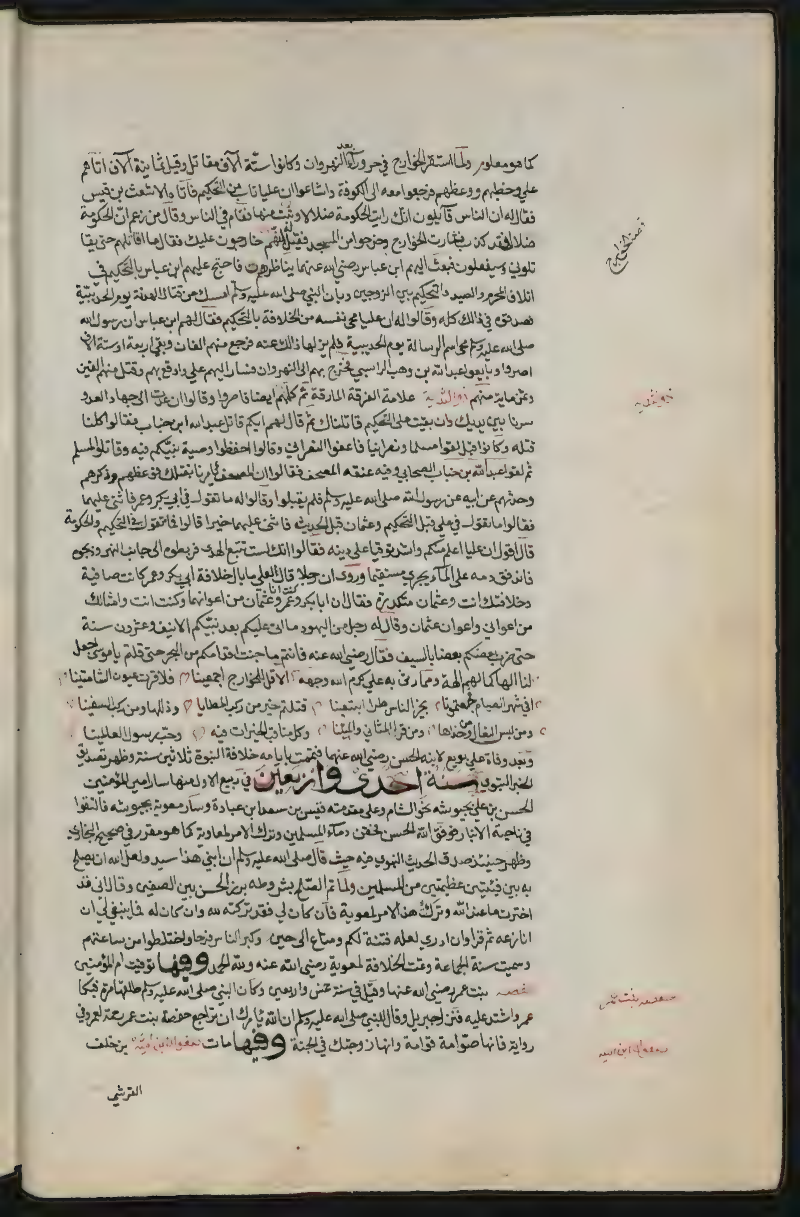 كما هو معلوم ولما استقر الخوارج في حروراء بعد النهروان وكانوا ستة آلاف مقاتل وقيل ثمانية آلاف اتاهم
علي وخطبهم ووعظهم فرجعوا معه الى الكوفة واشاعوا ان عليا تاب من التحكيم فاتاه الاشعث بن قيس
فقال له ان الناس قايلون انك رايت الحكومة ضلالا وتبت منها فقام في الناس وقال من زعم ان الحكومة
ضلال فقد كذب فثارت الخوارج وخرجوا من المسجد فقيل له انهم خارجون عليك فقال ما اقاتلهم حتى يقا
تلوني وسيفعلون فبعث اليهم ابن عباس رضي الله عنهما يناظرهم فاحتج عليهم ابن عباس بالتحكيم في
اتلاف المحرم الصيد والتحكيم بين الزوجين وبان النبي صلى الله عليه وسلم امسك من قتال الهدنة يوم الحديبية
فصدقوه في ذالك كله وقالوا له ان عليا محى نفسه من الخلافة بالتحكيم فقال لهم ابن عباس ان رسول الله
صلى الله عليه وسلم محى اسم الرسالة يوم الحديبية فلم يزلها ذالك عنه فرجع منهم الفان وبقي اربعة او ستة الاف
اصروا وبايعوا عبد الله بن وهب الراسبي فخرج بهم الى النهروان فسار اليهم علي واوقع بهم وقتل منهم الفين
وثمن ماية منهم ذو الثدية علامة الفرقة المارقة ثم كلمهم ايضا فاصروا وقالوا ان عدت الى جهاد العدو
سرنا بين يديك وان بقيت على التحكيم قاتلناك ثم قال لهم ايكم قاتل عبد الله ابن خباب فقالوا كلنا
قتله وكانوا قبل لقوا مسلما ونصرانيا فاعفوا النصراني وقالوا احفظوا وصية نبيكم فيه وقاتلوا المسلم
ثم لقوا عبد الله بن خباب الصحابي وفي عنقه المصحف فقالوا ان المصحف يامرنا بقتلك فوعظهم وذكرهم
وحدثهم عن ابيه عن رسول الله صلى الله عليه وسلم فلم يقبلوا وقالوا له ما تقول في ابي بكر وعمر فاثنى عليهما
فقالوا ما تقول في علي قبل التحكيم وعثمان قبل الحدث فاثنى عليهما خيرا قالوا فما تقول في التحكيم والحكومة
قال اقول ان عليا اعلم منكم واشد توقيا على دينه فقالوا انك لست تتبع الهدى فربطوه الى جانب النهر وذبحوه
فاندفق دمه على الماء يجري مستقيما وروى ان رجلا قال لعلي ما بال خلافة ابي بكر وعمر كانت صافية
وخلافتك انت وعثمان متكدرة فقال ان ابا بكر وعمر كنت انا وعثمان من اعوانهما وكنت انت وامثالك
من اعواني واعوان عثمان وقال له رجل من اليهود ما اتى عليكم بعد نبيكم الا نيف وعشرون سنة
حتى ضرب بعضكم بعضا بالسيف فقال رضي الله عنه فانتم ما جفت اقدامكم من البحر حتى قلتم يا موسى اجعل
لنا الها كما لهم الهة ومما رثى به علي كرم الله وجهه الا قل للخوارج اجمعينا فلا قرت عيون الشامتينا
افي شهر الصيام فجعتمونا بخير الناس طرا اجمعينا قتلتم خير من ركب المطايا وذللها ومن ركب السفينا
ومن لبس النعال ومن حذاها ومن قرأ المثاني والمبينا وكل مناقب الخيرات فيه وحب رسول العالمينا
وبعد وفاة علي بويع لابنه الحسن رضي الله عنهما فتمت بايامه خلافة النبوة ثلاثين سنة وظهر تصديق
الخبر النبوي سنة احدى واربعين في ربيع الاول منها سار امير المؤمنين
الحسن بن علي بجيوشه نحو الشام وعلى مقدمته قيس بن سعد ابن عبادة وسار معوية بجيوشه فالتقوا
في ناحية الانبار فوفق الله الحسن لحقن دماء المسلمين وترك الامر لمعاوية كما هو مقرر في صحيح البخاري
وظهر حينئذ صدق الحديث النبوي فيه حيث قال صلى الله عليه وسلم ان ابني هذا سيد ولعل الله ان يصلح
به بين فيئتين عظيمتين من المسلمين ولما تم الصلح بشروطه برز الحسن بين الصفين وقال اني قد
اخترت ما عند الله وتركت هذا الامر لمعوية فان كان لي فقد تركته لله وان كان له فما ينبغي لي ان
انازعه ثم قرا وان ادري لعله فتنة لكم ومتاع الى حين وكبر الناس فرحا واختلطوا من ساعتهم
وسميت سنة الجماعة وتمت الخلافة لمعوية رضي الله عنه ولله الحمد وفيها توفيت ام المؤمنين
حفصه بنت عمر رضي الله عنهما وقيل في سنة خمس واربعين وكان النبي صلى الله عليه وسلم طلقها مرة فبكا
عمر واشتد عليه فنزل جبريل وقال للنبي صلى الله عليه وسلم ان الله يأمرك ان تراجع حفصة بنت عمر رحمة لعمر وفي
رواية فانها صوامة قوامة وانها زوجتك في الجنة وفيها مات صفوان ابن امية بن خلف
القرشي
ذو الثديه
حفصه بنت عمر